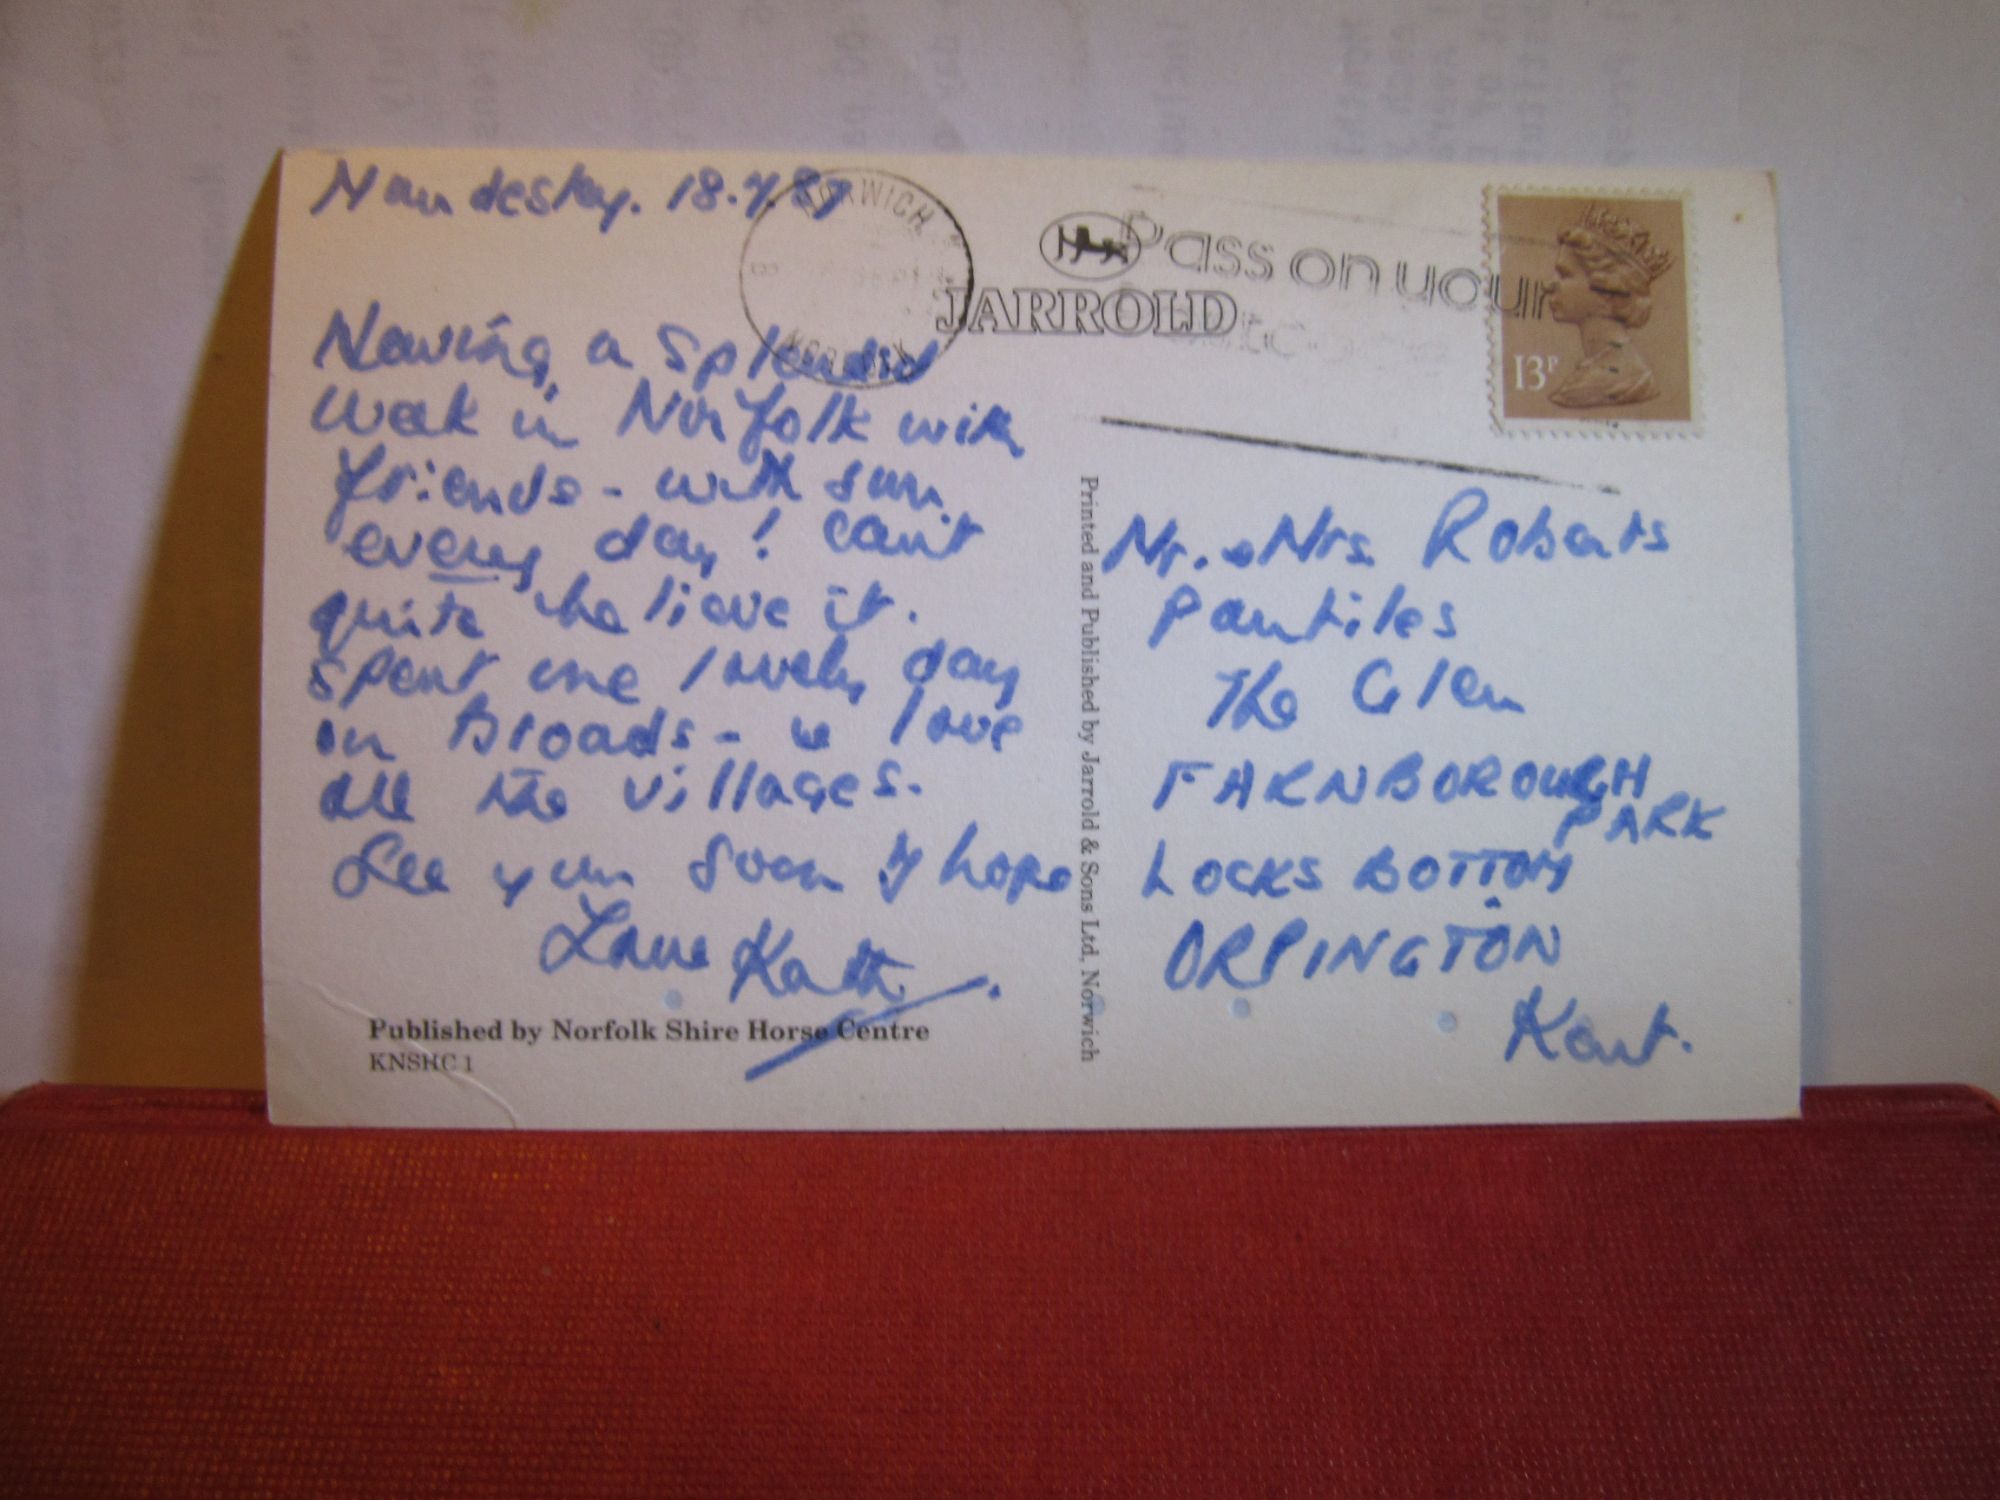 Mundesley. 18.9.87
Having a splendid
week in Norfolk with
friends - with sun
every day! Can't
quite believe it.
Spent one lovely day
on Broads - we love
all the villages.
See you soon I hope
Love Kath.
Published by Norfolk Shire Horse Centre
KNSHC 1
NORWICH
NORFOLK
Pass on your
JARROLD
13P
Printed and Published by Jarrold & Sons Ltd, Norwich
Mr. & Mrs Roberts
Pantiles
The Glen
FARNBOROUGH
PARK
LOCKS BOTTOM
ORPINGTON
Kent.